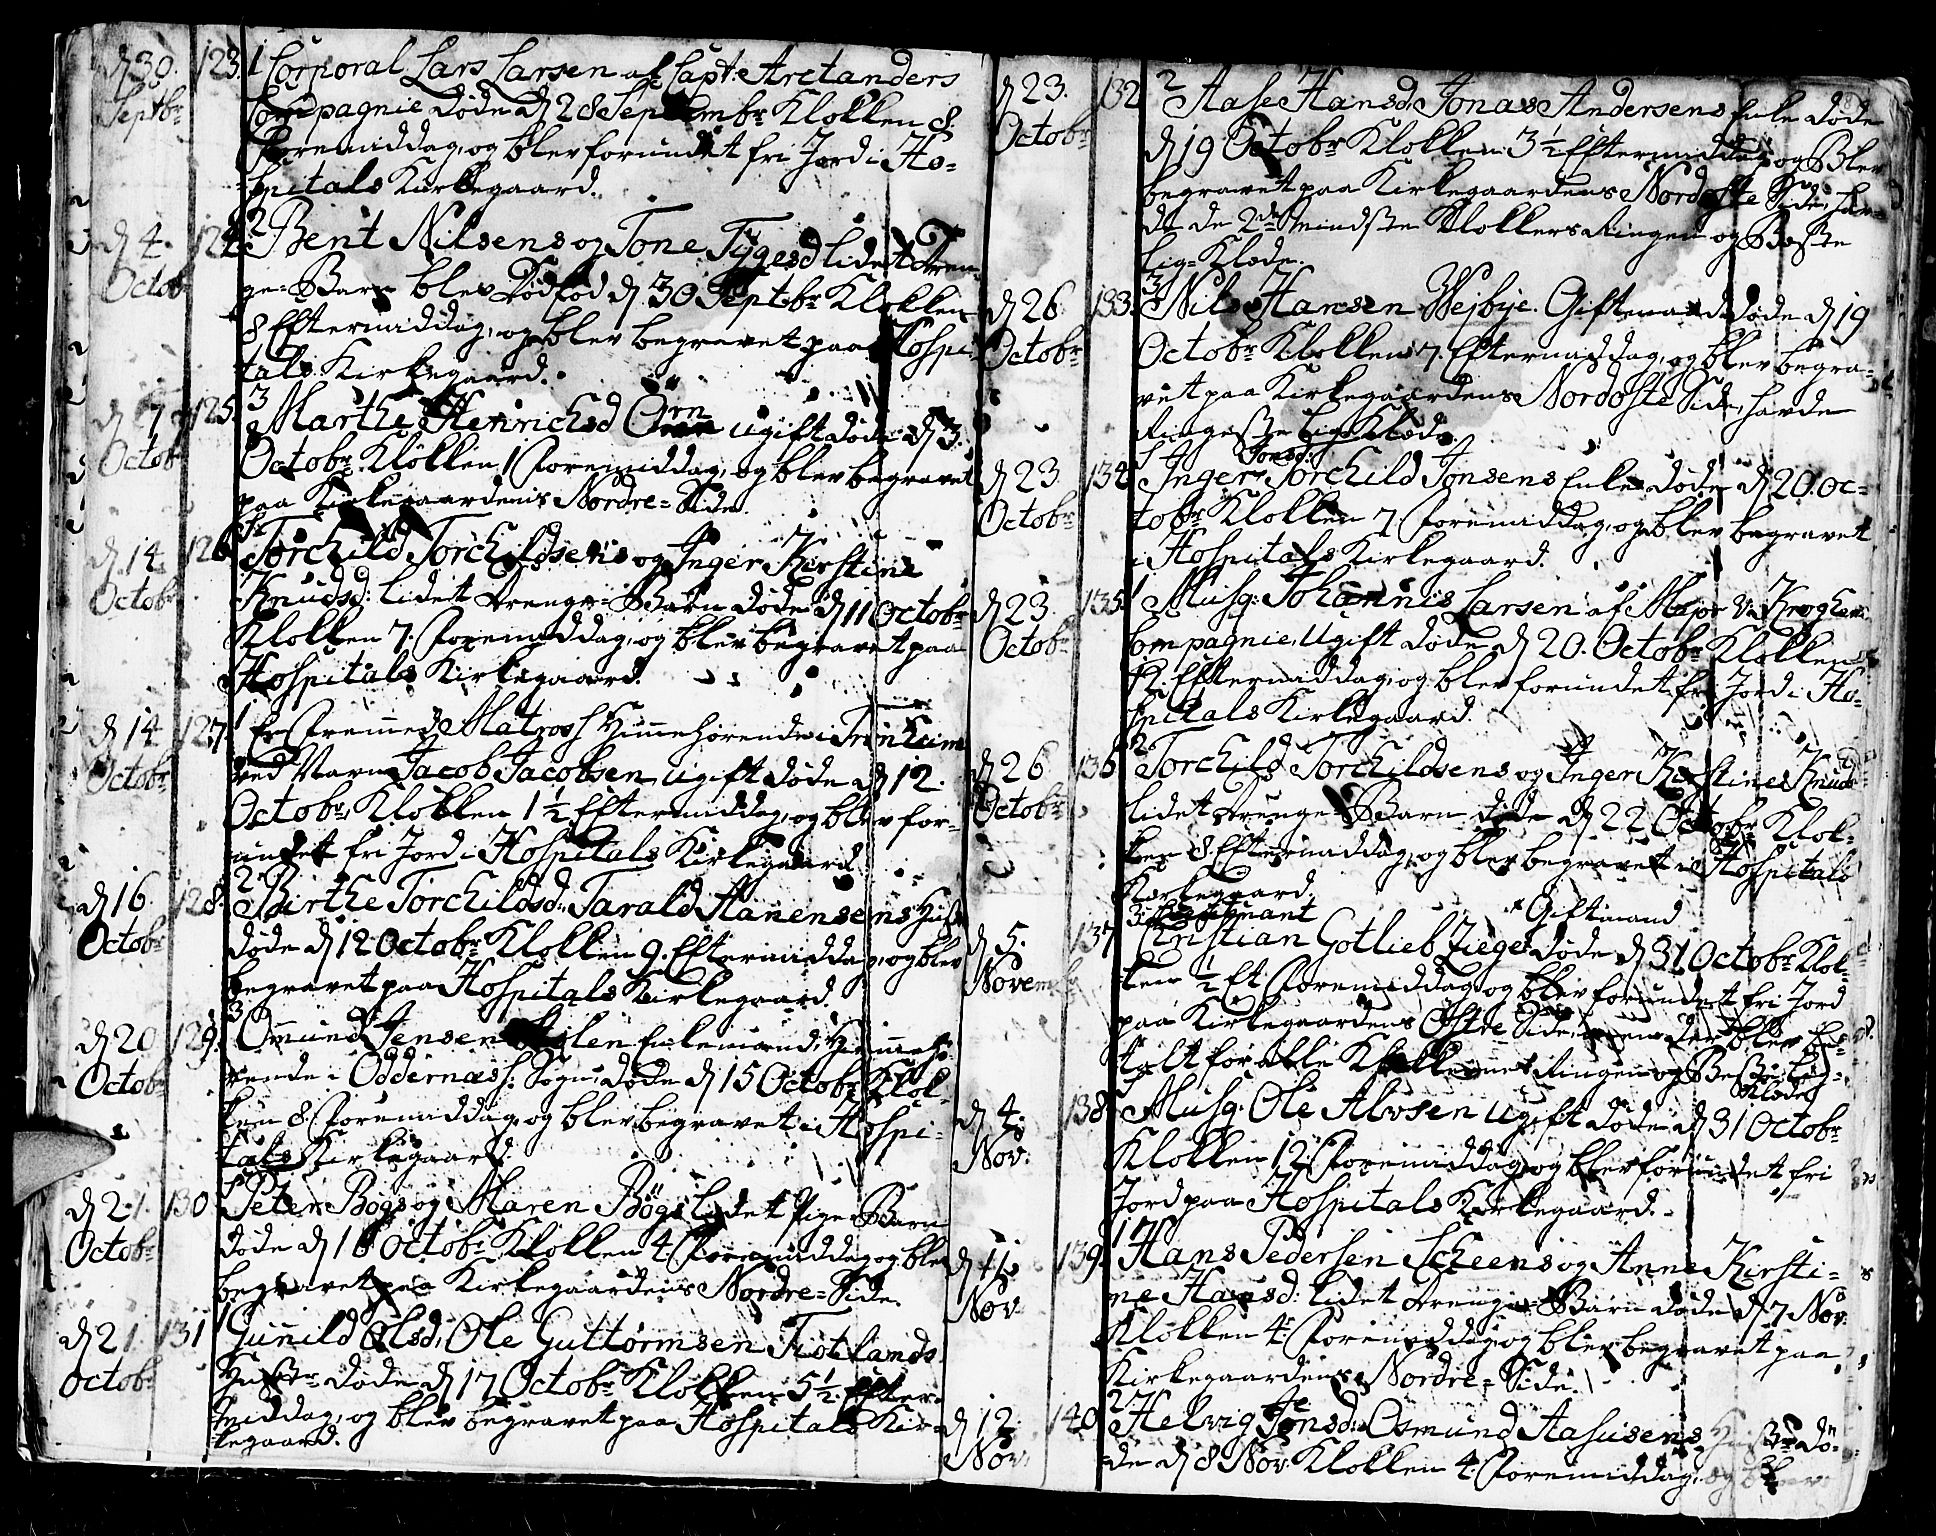 d 30. Septbr 123. 1 Corporal Lars Larsen af Capt: Arctanders
Compagnie døde d 28 Septembr Klokken 8.
Foremiddag, og blev forundet fri Jord i Ho-
spitals Kirkegaard.
d 4. Octob 124. 2 Bent Nilsens og Tone Tygesd lidet Dren-
ge-Barn blev Dødfød d 30 Septbr Klokken
8 Eftermiddag, og blev begravet paa Hospi-
tals Kirkegaard.
d 7 Octob 125. 3 Marthe Henrichsd Örn ugift døde d 3.
Octobr. Klokken 1 Foremiddag, og blev begravet
paa Kirkegaardens Nordre-Side.
d. 14. Octobr 126. 4 Torchild Torchildsens og Inger Kirstine
Knudsd: lidet Drenge-Barn døde d 11 Octobr
Klokken 7. Foremiddag, og blev begravet paa
Hospitals Kirkegaard.
d 14 Octobr 127. 1 En Fremmede Matros Himmehørende i Trinheim
ved Navn Jacob Jacobsen, ugift døde d 12.
Octobr, Klokken 1½ Eftermiddag, og blev for-
undet fri Jord i Hospitals Kirkegaard
d 16 Octobr 128. 2 Birthe Torchildsd: Tarald Hanensens
døde d 12 Octobr Klokken 9. Eftermiddag, og blev
begravet paa Hospitals Kirkegaard.
d 20 Octobr 129. 3 Ommund Jensen Enkemand, Himmehø-
rende i Oddernæs: Sogn, døde d 15 Octobr Klok-
ken 8. Foremiddag, og blev begravet i Hospi-
tals Kirkegaard.
d 21. Octobr 130 4 Peter Bøgs og Maren Bøgs lidet Pige Barn
døde d 16 Octobr Klokken 4 Foremiddag og blev
begravet paa Kirkegaardens Nordre-Side.
d 21. Octobr 131 1 Gunnild Olsd, Ole Guttormsen Trotlands
Hustr døde d 17 Octobr Klokken 5½ Efter-
middag, og blev begravet paa Hospitals Kir-
kegaard.
d 23. Octobr 132 2 Aase Hansd, Jonas Andersens Enke døde
d 19 Octobr Klokken 3½ Eftermiddag, og Blev
begravet paa Kirkegaardens Nordøste Side, hav-
de de 2de Mindste Klokkers Ringen og Beste
Lig-Klæde.
d 26. Octobr 133. 3 Nils Hansen Wejbye. Giftemand Døde d 19
Octobr Klokken 7. Eftermiddag, og blev begra-
vet paa Kirkegaardens Nordøste Side, havde
Ringeste Lig-Klæde.
d 23 Octobr 134 4 Inger Jonsd: Torchild Jonsens Enke døde d 20. Oc-
tobr Klokken 7. Foremiddag, og blev begravet
i Hospitals Kirkegaard.
d 23. Octobr 135. 1 Musq: Johannis Larsen af Major V. Kroghen
Compagnie, Ugift døde d 20. Octobr Klokken
12 Eftermiddag, og blev forundet fri Jord i Ho-
spitals Kirkegaard.
d 26 Octobr 136 2 Torchild Torchildsens og Inger Kirstine Knudsd
lidet Drenge-Barn døde d 22 Octobr Klok-
ken 8. Eftermiddag, og blev begravet i Hospitals
Kirkegaard.
d 5. Novembr 137 3 Christian Gotlieb Zieger Giftemand døde d 31 Octobr Klok-
ken ½ Et Foremiddag, og blev forundet fri Jord
paa Kirkegaardens Østre Side, men der blev be-
talt for alle Klokkernes Ringen og Beste Lig-
Klæde
d 4. Nov. 138. 4 Musq. Ole Alvsen Ugift døde d 31 Octobr
Klokken 12 Foremiddag, og blev forundet fri
Jord paa Hospitals Kirkegaard.
d 11. Nov 139. 1 Hans Pedersen Scheens og Anne Kirsti-
ne Hansd: lidet Drenge-Barn døde d 7 Nov.
Klokken 4. Foremiddag, og blev begravet paa
Kirkegaardens Nordre-Side.
d 12. Nov. 140. 2 Helvig Jonsd: Osmund Aasusens Hustr dø-
de d 8 Nov: Klokken 4. Foremiddag, og blev